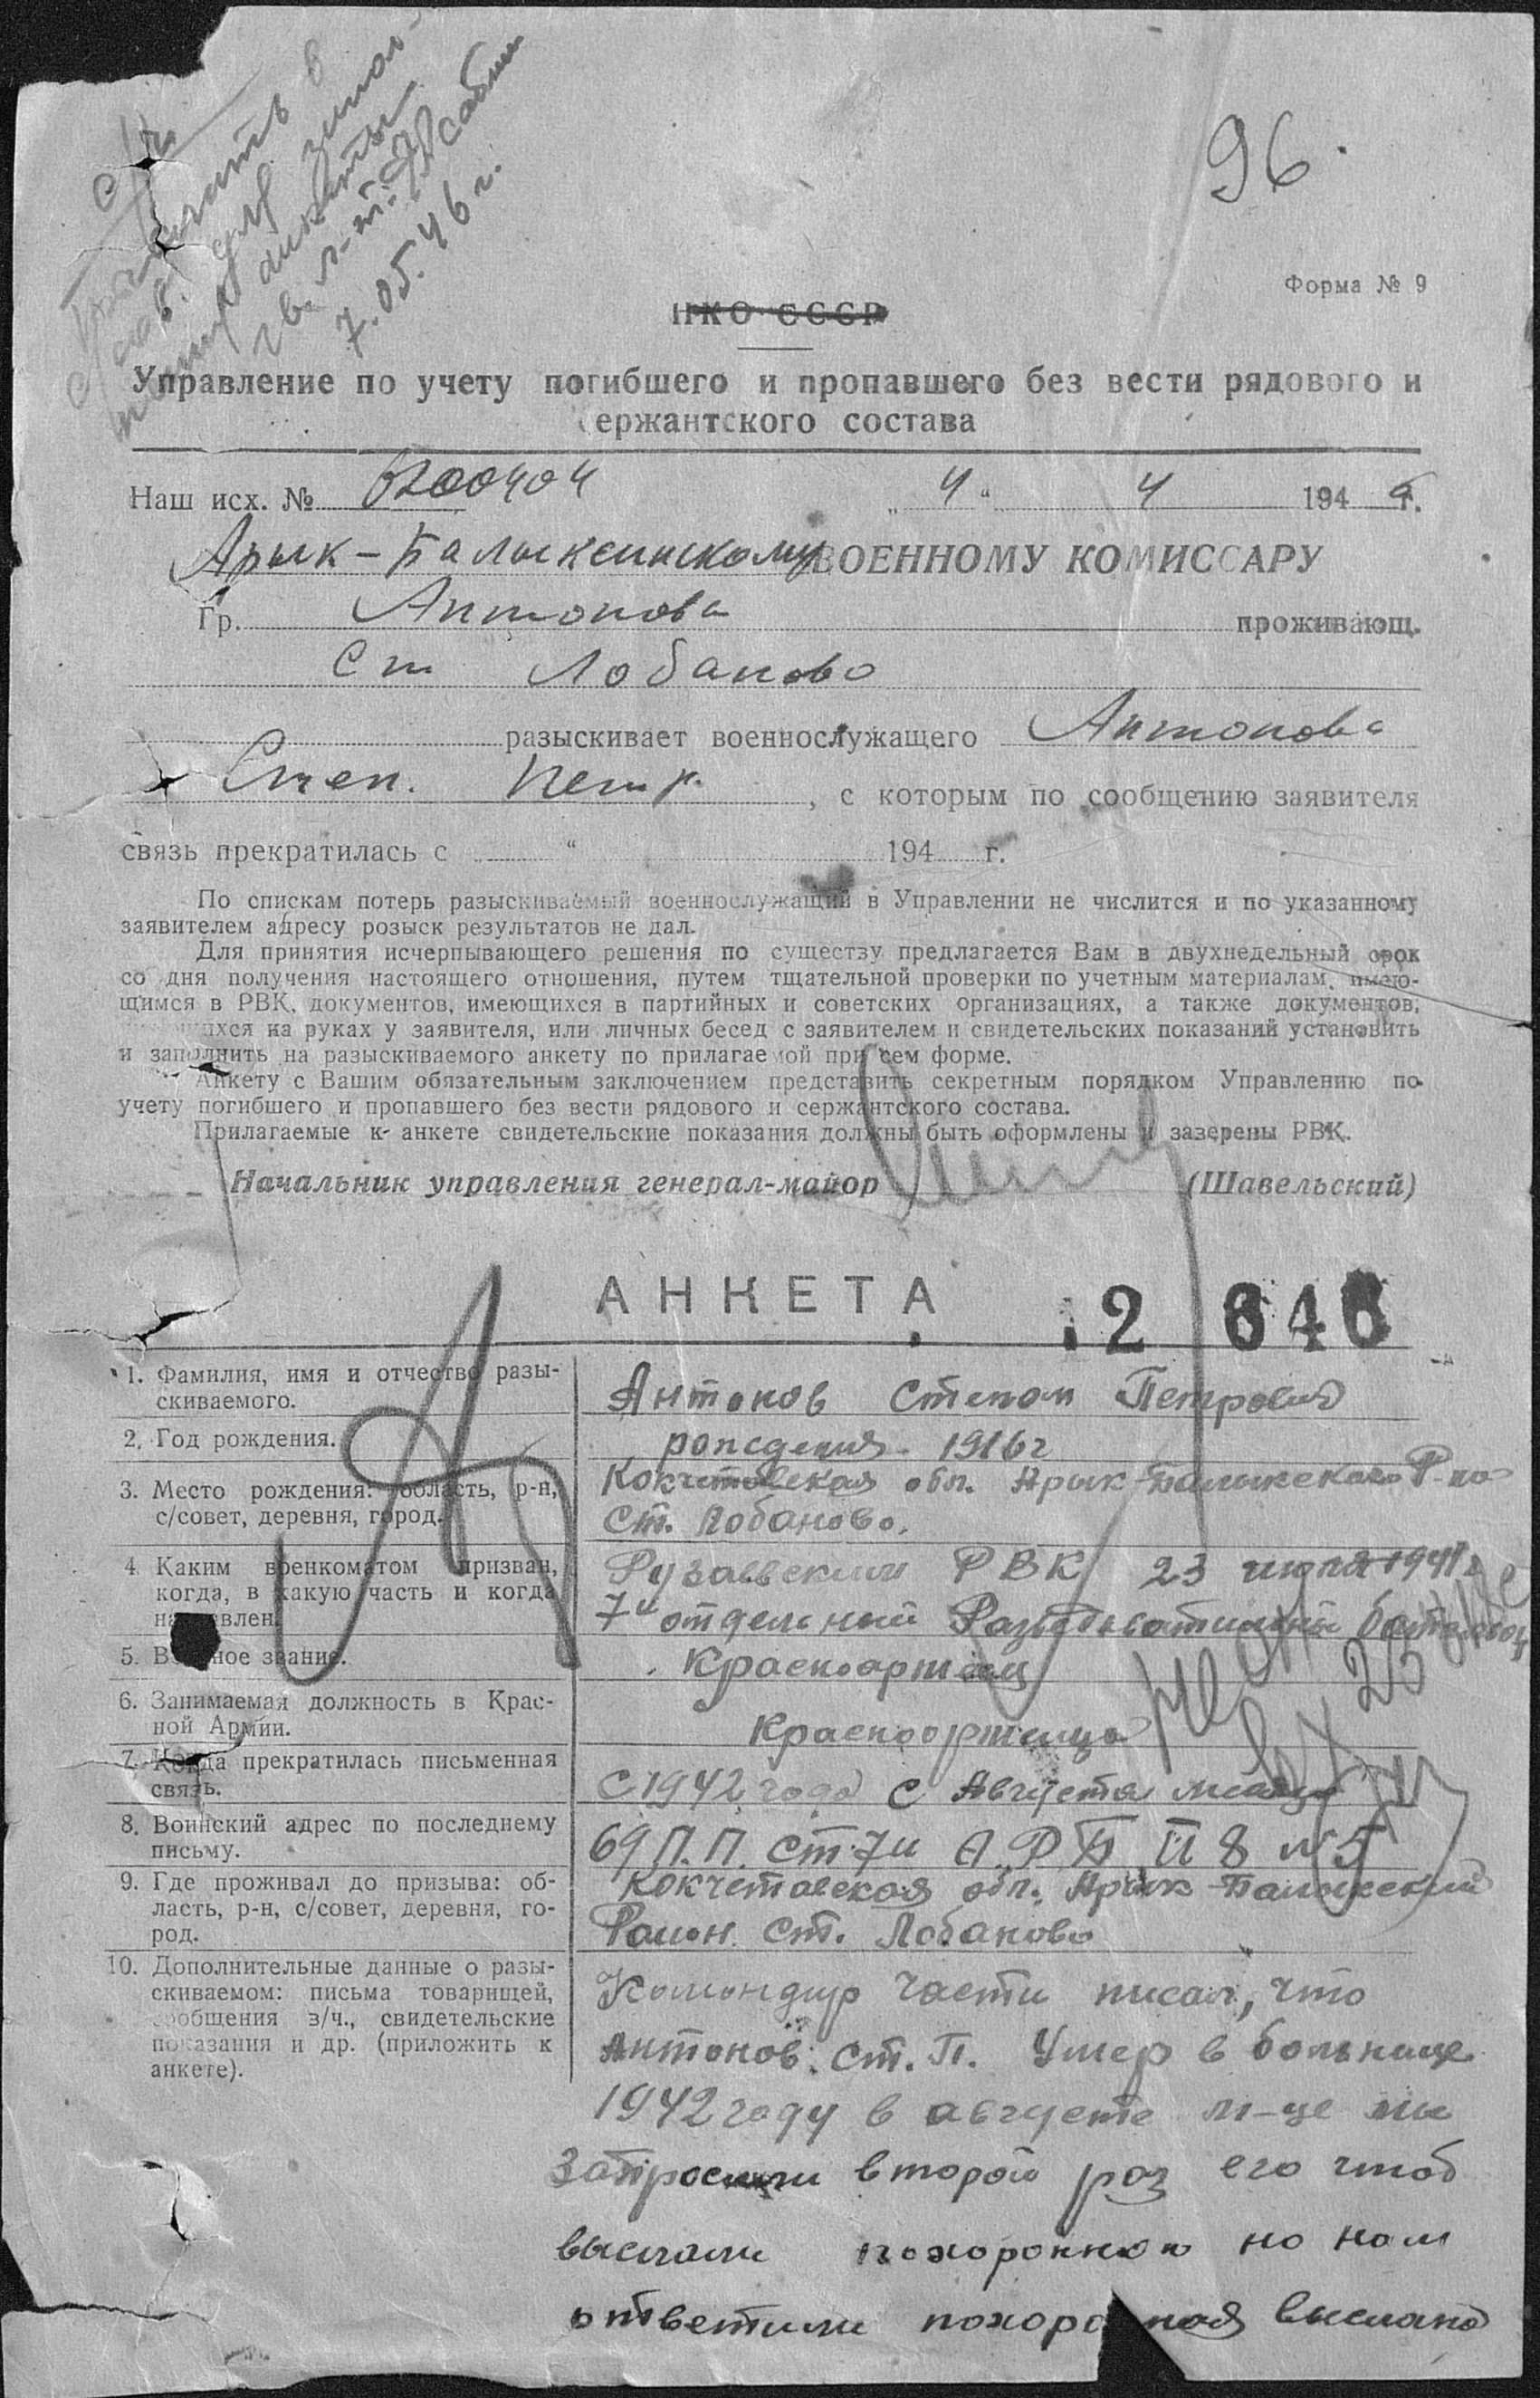 96.
Форма № 9
НКО СССР
7.05.46 г.
Управление по учету погибшего и пропавшего без вести рядового и
сержантского состава
Наш исх. № 4 " 4 194 г.
Арык-Балыкскому ВОЕННОМУ КОМИССАРУ
Гр. Антонова проживающ.
Ст Лобаново
разыскивает военнослужащего Антонова
Степ. Петр. , с которым по сообщению заявителя
связь прекратилась с " 194 г.
По спискам потерь разыскиваемый военнослужащий в Управлении не числится и по указанному
заявителем адресу розыск результатов не дал.
Для принятия исчерпывающего решения по существу предлагается Вам в двухнедельный срок
со дня получения настоящего отношения, путем тщательной проверки по учетным материалам, имею-
щимся в РВК, документов, имеющихся в партийных и советских организациях, а также документов,
на руках у заявителя, или личных бесед с заявителем и свидетельских показаний установить
и заполнить на разыскиваемого анкету по прилагаемой при сем форме.
Анкету с Вашим обязательным заключением представить секретным порядком Управлению по
учету погибшего и пропавшего без вести рядового и сержантского состава.
Прилагаемые к анкете свидетельские показания должны быть оформлены и заверены РВК.
Начальник управления генерал-майор (Шавельский)
АНКЕТА 2 646
1. Фамилия, имя и отчество разы-
скиваемого.
Антонов Степан Петрович
2. Год рождения.
рождения 1916 г
3. Место рождения: область, р-н,
с/совет, деревня, город.
Кокчетавская обл. Арык-Балыкского Р-на
ст. Лобаново.
4. Каким военкоматом призван,
когда, в какую часть и когда
направлен.
Рузаевским РВК 23 июля 1941 г
7й отдельный Разведывательный батальон
5. Военное звание.
Красноармеец
6. Занимаемая должность в Крас-
ной Армии.
Красноармеца
7. Когда прекратилась письменная
связь.
С 1942 года с Августа месяца
8. Воинский адрес по последнему
письму.
69 П.П. ст. 7й А.Р.Б П 8 N 5
9. Где проживал до призыва: об-
ласть, р-н, с/совет, деревня, го-
род.
Кокчетавская обл. Арык-Балыкский
Район. ст. Лобаново
10. Дополнительные данные о разы-
скиваемом: письма товарищей,
сообщения в/ч., свидетельские
показания и др. (приложить к
анкете).
Командир части писал, что
Антонов. Ст. П. Умер в больнице
1942 году в августе м-це мы
запросили второй раз его чтоб
выслали похоронною но нам
ответили похоронная выслана